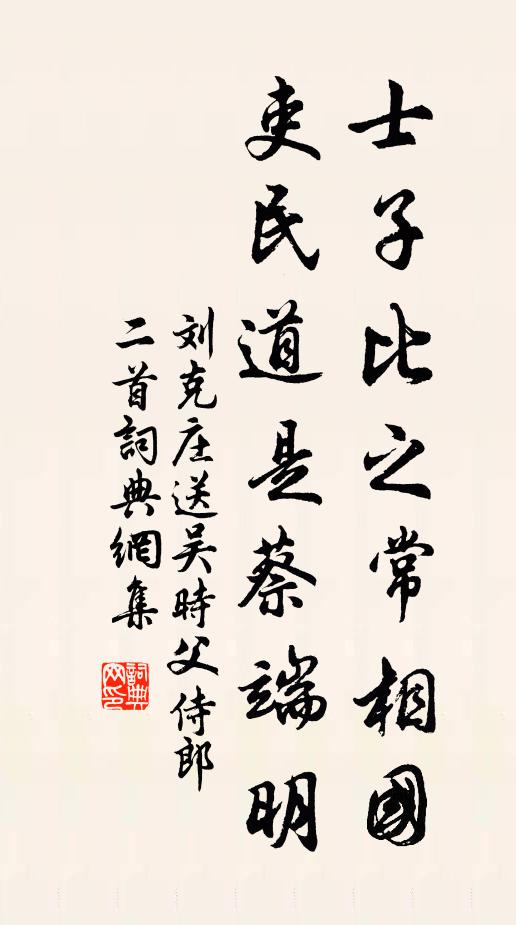 士子比之常相國
吏民道是蔡端明
刘克庄送吴時父侍郎
二首詞典網集
詞典网印